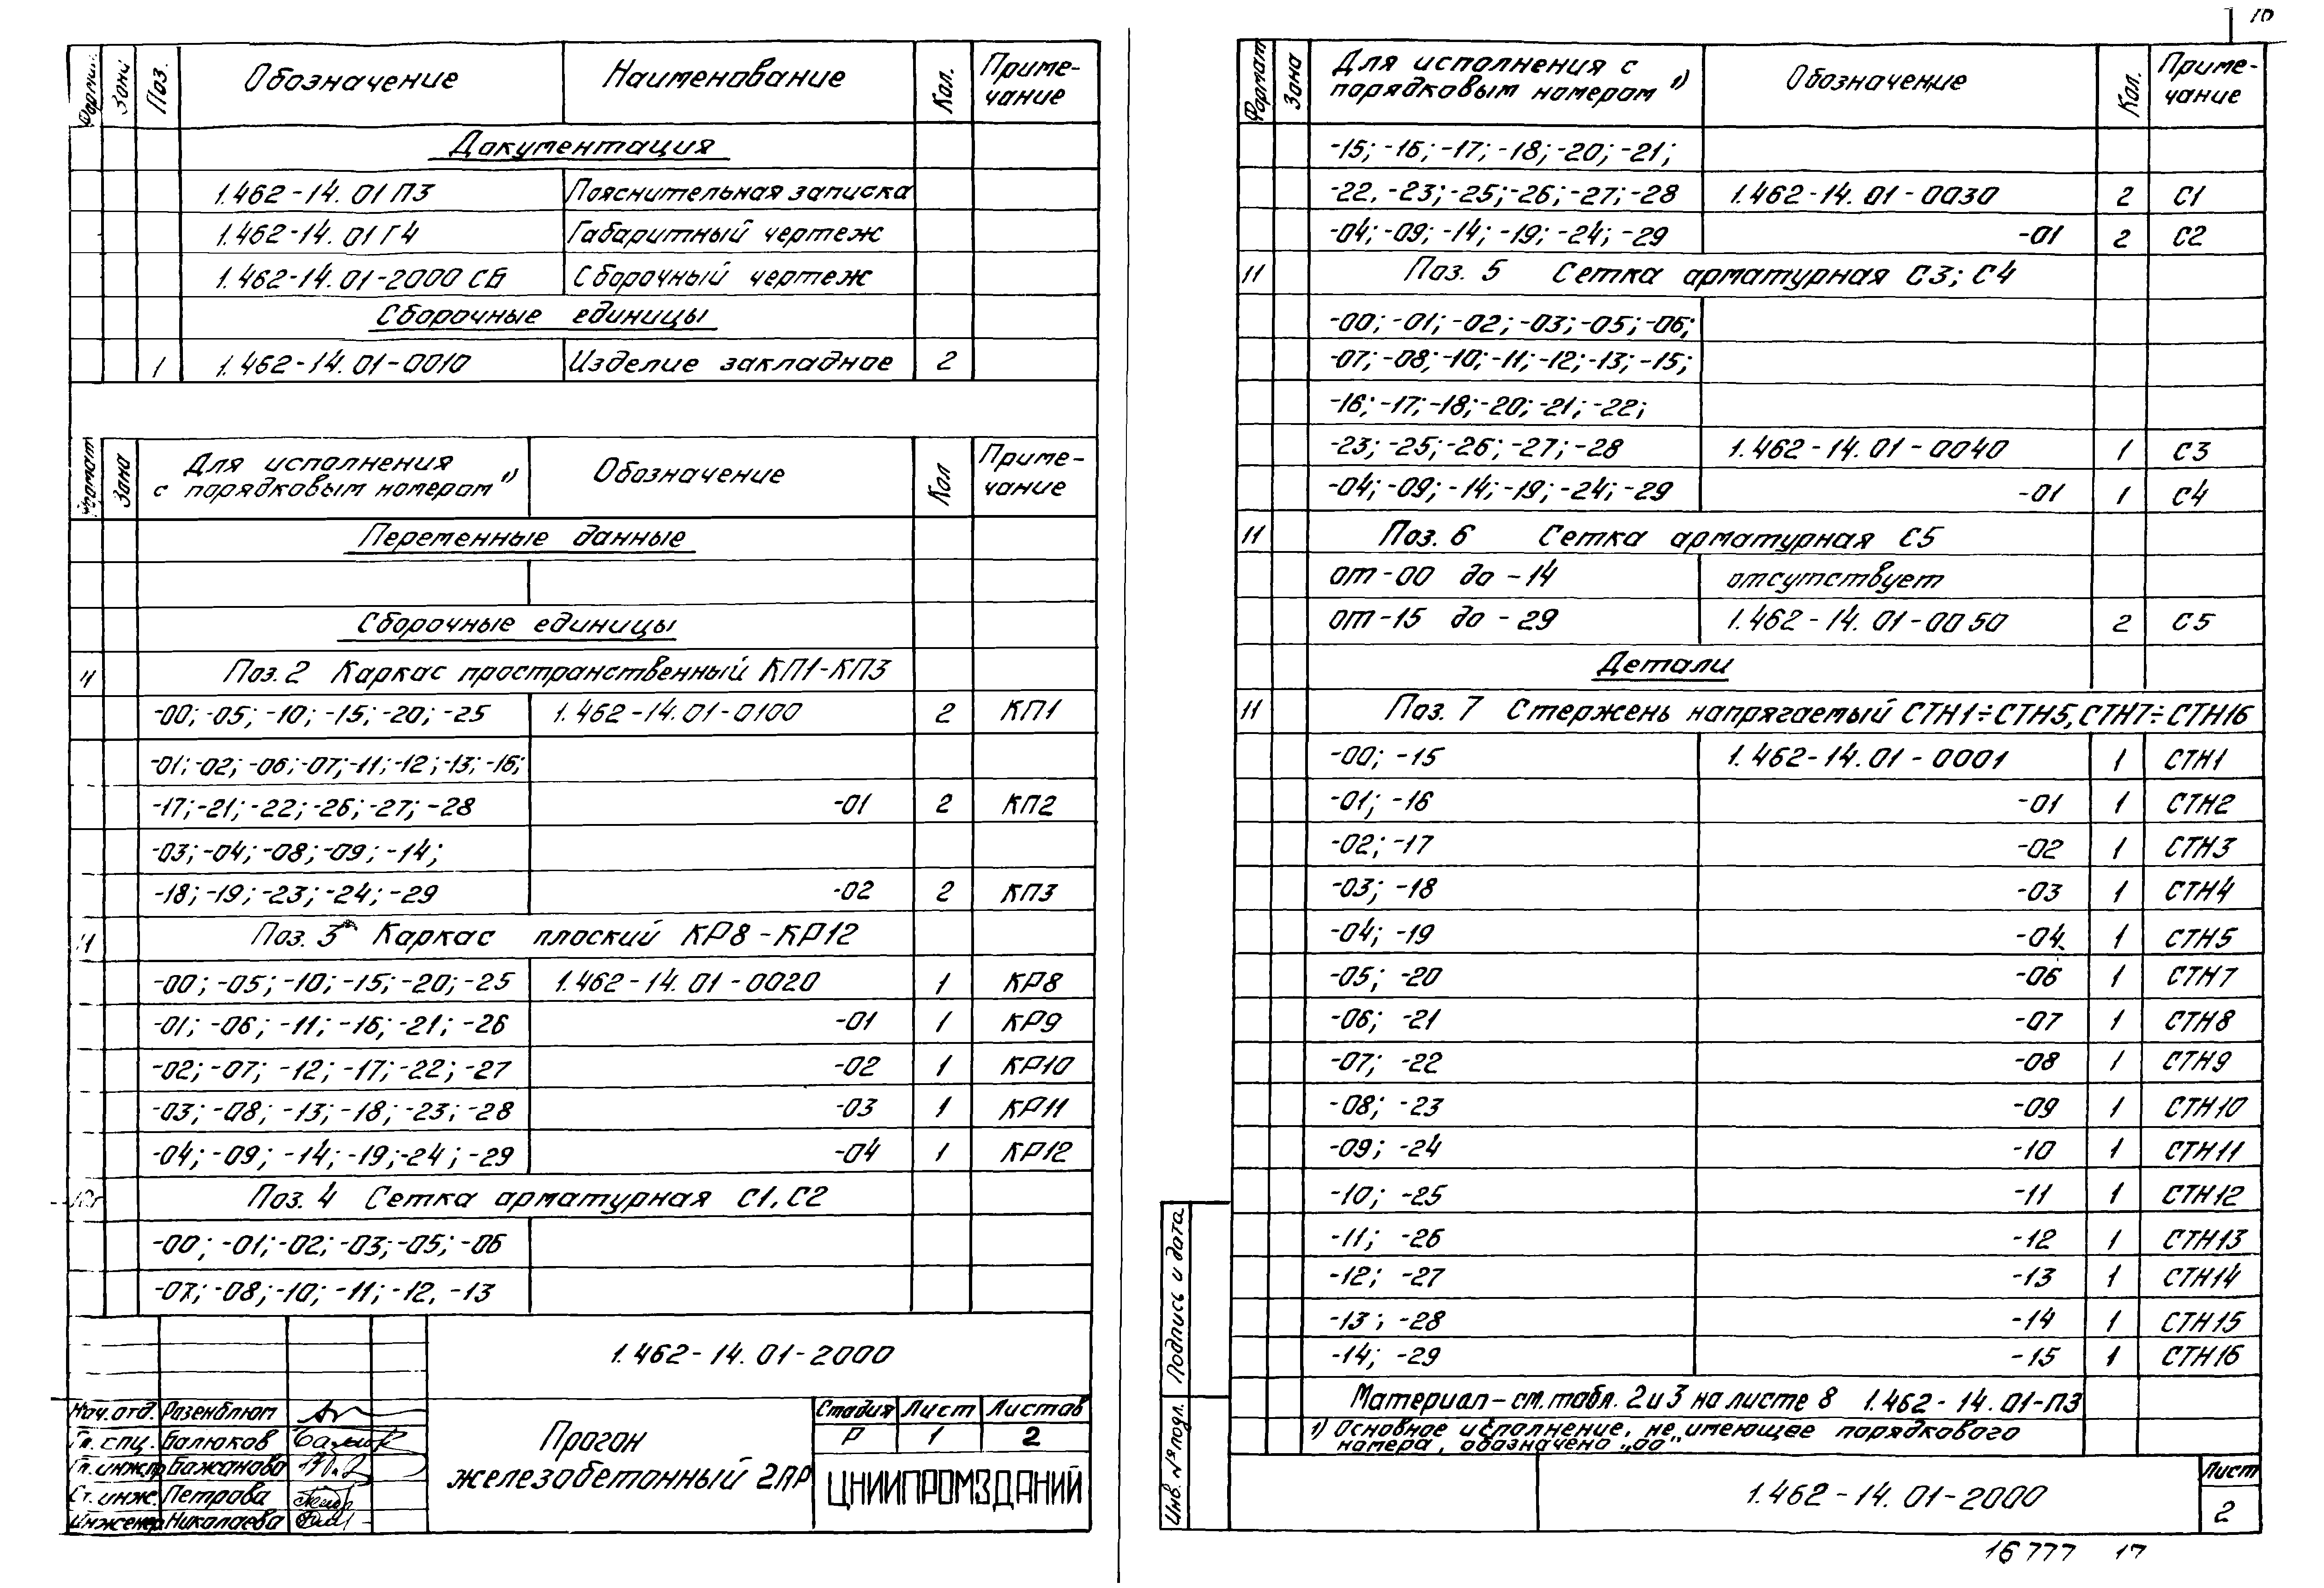 Формат Зона Поз. Обозначение Наименование Кол. Приме-
чание
Документация
1.462-14.01 ПЗ Пояснительная записка
1.462-14.01 ГЧ Габаритный чертеж
1.462-14.01-2000 СБ Сборочный чертеж
Сборочные единицы
1 1.462-14.01-0010 Изделие закладное 2
Формат Зона Для исполнения
с порядковым номером 1) Обозначение Кол Приме-
чание
Переменные данные
Сборочные единицы
11 Поз. 2 Каркас пространственный КП1-КП3
-00; -05; -10; -15; -20; -25 1.462-14.01-0100 2 КП1
-01; -02; -06; -07; -11; -12; -13; -16;
-17; -21; -22; -26; -27; -28 -01 2 КП2
-03; -04; -08; -09; -14;
-18; -19; -23; -24; -29 -02 2 КП3
11 Поз. 3 Каркас плоский КР8-КР12
-00; -05; -10; -15; -20; -25 1.462-14.01-0020 1 КР8
-01; -06; -11; -16; -21; -26 -01 1 КР9
-02; -07; -12; -17; -22; -27 -02 1 КР10
-03; -08; -13; -18; -23; -28 -03 1 КР11
-04; -09; -14; -19; -24; -29 -04 1 КР12
Поз. 4 Сетка арматурная С1, С2
-00; -01; -02; -03; -05; -06
-07; -08; -10; -11; -12, -13
1.462-14.01-2000
Нач. отд. Розенблюм
Гл. спец. Балюков
Гл. инж. пр Бажанова
Ст. инж. Петрова
Инженер Николаева
Прогон
железобетонный 2ПР
Стадия Лист Листов
Р 1 2
ЦНИИПРОМЗДАНИЙ
10
Формат Зона Для исполнения с
порядковым номером 1) Обозначение Кол. Приме-
чание
-15; -16; -17; -18; -20; -21;
-22, -23; -25; -26; -27; -28 1.462-14.01-0030 2 С1
-04; -09; -14; -19; -24; -29 -01 2 С2
11 Поз. 5 Сетка арматурная С3; С4
-00; -01; -02; -03; -05; -06;
-07; -08; -10; -11; -12; -13; -15;
-16; -17; -18; -20; -21; -22;
-23; -25; -26; -27; -28 1.462-14.01-0040 1 С3
-04; -09; -14; -19; -24; -29 -01 1 С4
11 Поз. 6 Сетка арматурная С5
от -00 до -14 отсутствует
от -15 до -29 1.462-14.01-0050 2 С5
Детали
11 Поз. 7 Стержень напрягаемый СТН1÷СТН5, СТН7÷СТН16
-00; -15 1.462-14.01-0001 1 СТН1
-01; -16 -01 1 СТН2
-02; -17 -02 1 СТН3
-03; -18 -03 1 СТН4
-04; -19 -04 1 СТН5
-05; -20 -06 1 СТН7
-06; -21 -07 1 СТН8
-07; -22 -08 1 СТН9
-08; -23 -09 1 СТН10
-09; -24 -10 1 СТН11
-10; -25 -11 1 СТН12
-11; -26 -12 1 СТН13
-12; -27 -13 1 СТН14
-13; -28 -14 1 СТН15
-14; -29 -15 1 СТН16
Материал-см. табл. 2 и 3 на листе 8 1.462-14.01-ПЗ
1) Основное исполнение, не имеющее порядкового
номера, обозначено „00"
Подпись и дата
Инв. № подл.
1.462-14.01-2000
Лист
2
16777 17